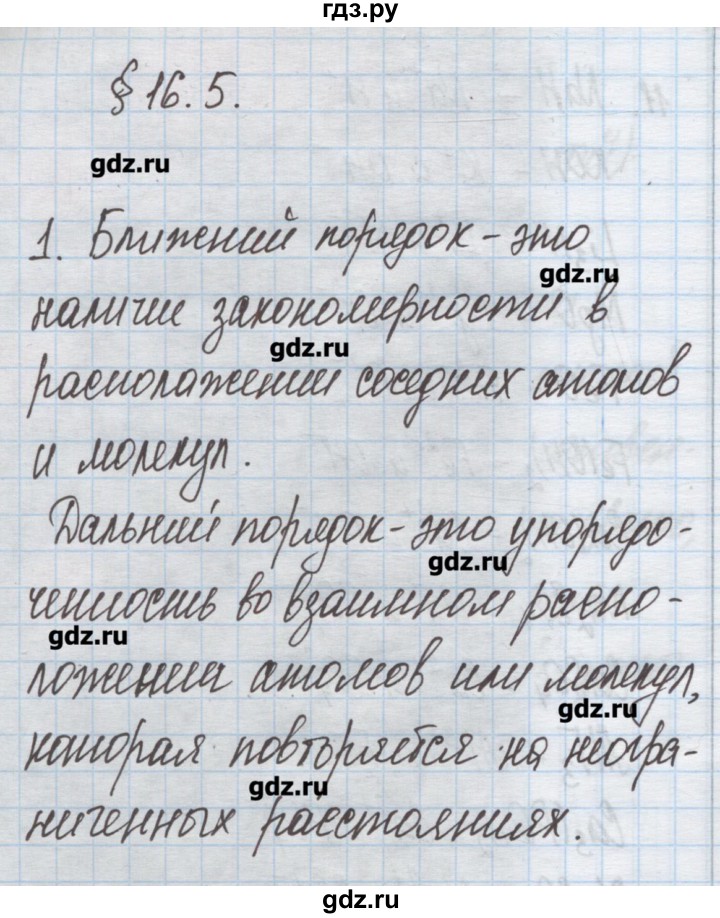 гдз.ру
§ 16.5.
gdz.ru
1. Ближений порядок - это
gdz.ru
наличие закономерности в
gdz.ru
расположении соседних атомов
и молекул.
Дальний порядок - это упорядо-
gdz.ru
ченность во взаимном распо-
gdz.ru
ложении атомов или молекул,
gdz.ru
которая повторяется на неогра-
gdz.ru
ниченных расстояниях.
gdz.ru